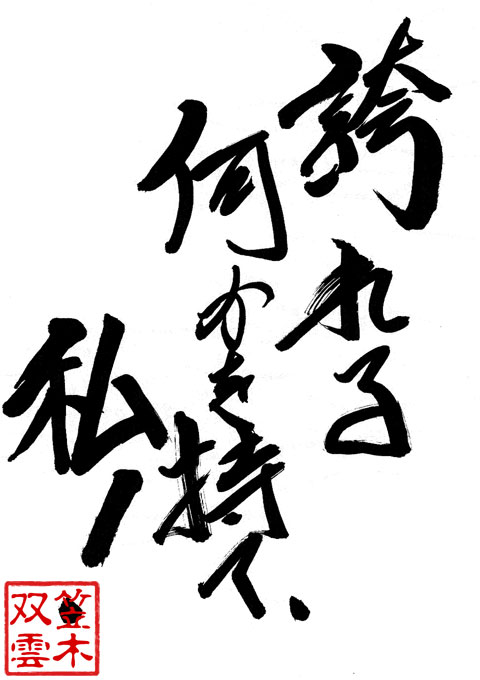 誇れる
何かを持て、
私！
笠木
双雲